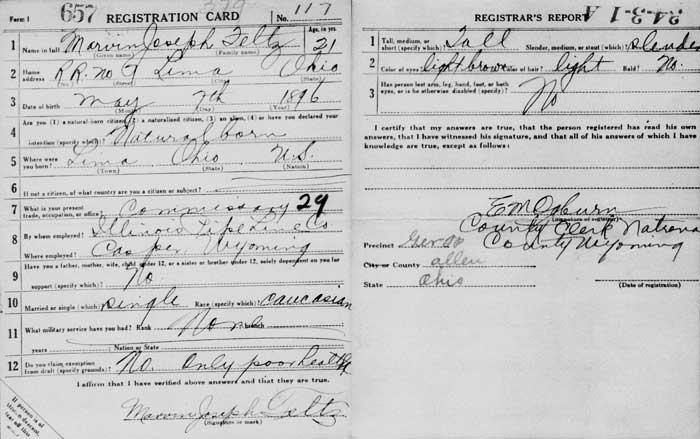 Form 1 657 REGISTRATION CARD No. 117
1 Name in full Marvin Joseph Feltz Age, in yrs. 21
(Given name) (Family name)
2 Home address R.R. No 9 Lima Ohio
(No.) (Street) (City) (State)
3 Date of birth May 7th 1896
(Month) (Day) (Year)
4 Are you (1) a natural-born citizen, (2) a naturalized citizen, (3) an alien, (4) or have you declared your
intention (specify which)? Natural born
5 Where were you born? Lima Ohio U.S.
(Town) (State) (Nation)
6 If not a citizen, of what country are you a citizen or subject?
7 What is your present trade, occupation, or office? Commissary 29
8 By whom employed? Illinois Pipe Line Co
Where employed? Casper, Wyoming
9 Have you a father, mother, wife, child under 12, or a sister or brother under 12, solely dependent on you for
support (specify which)? No
10 Married or single (which)? single Race (specify which)? Caucasian
11 What military service have you had? Rank None branch
years Nation or State
12 Do you claim exemption from draft (specify grounds)? No. Only poor health
I affirm that I have verified above answers and that they are true.
Marvin Joseph Feltz
(Signature or mark)
If person is of
African descent,
tear off this
corner
REGISTRAR'S REPORT 34-3-1-A
1 Tall, medium, or short (specify which)? Tall Slender, medium, or stout (which)? slender
2 Color of eyes? light brown Color of hair? light Bald? No.
3 Has person lost arm, leg, hand, foot, or both
eyes, or is he otherwise disabled (specify)? No
I certify that my answers are true, that the person registered has read his own
answers, that I have witnessed his signature, and that all of his answers of which I have
knowledge are true, except as follows:
E M Ogburn
(Signature of registrar)
County Clerk Natrona
County Wyoming
Precinct
City or County Allen
State Ohio
(Date of registration)